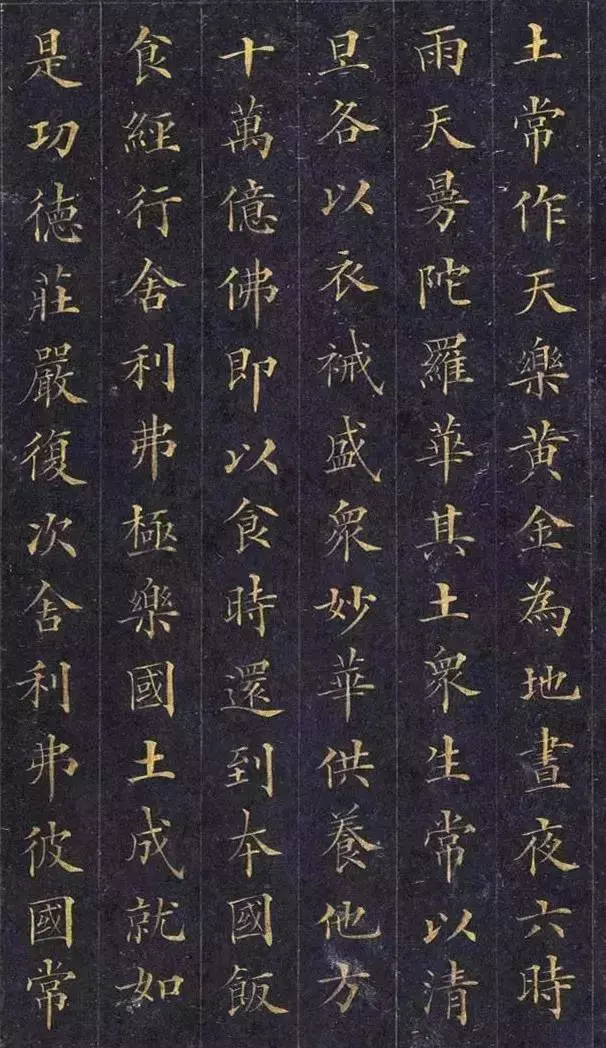 土常作天樂黃金為地晝夜六時
雨天曼陀羅華其土眾生常以清
旦各以衣祴盛眾妙華供養他方
十萬億佛即以食時還到本國飯
食經行舍利弗極樂國土成就如
是功德莊嚴復次舍利弗彼國常